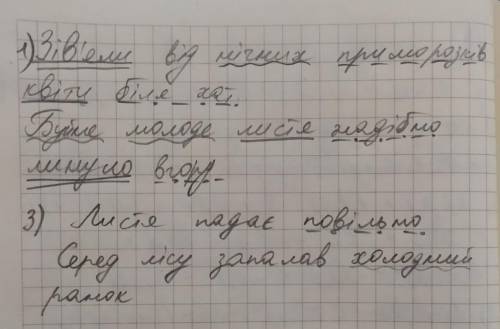 1) Зів'яли від нічних приморозків
квіти біля хат.
Буйне молоде листя жадібно
линуло вгору.
3) Листя падає повільно
Серед лісу запалав холодний
ранок